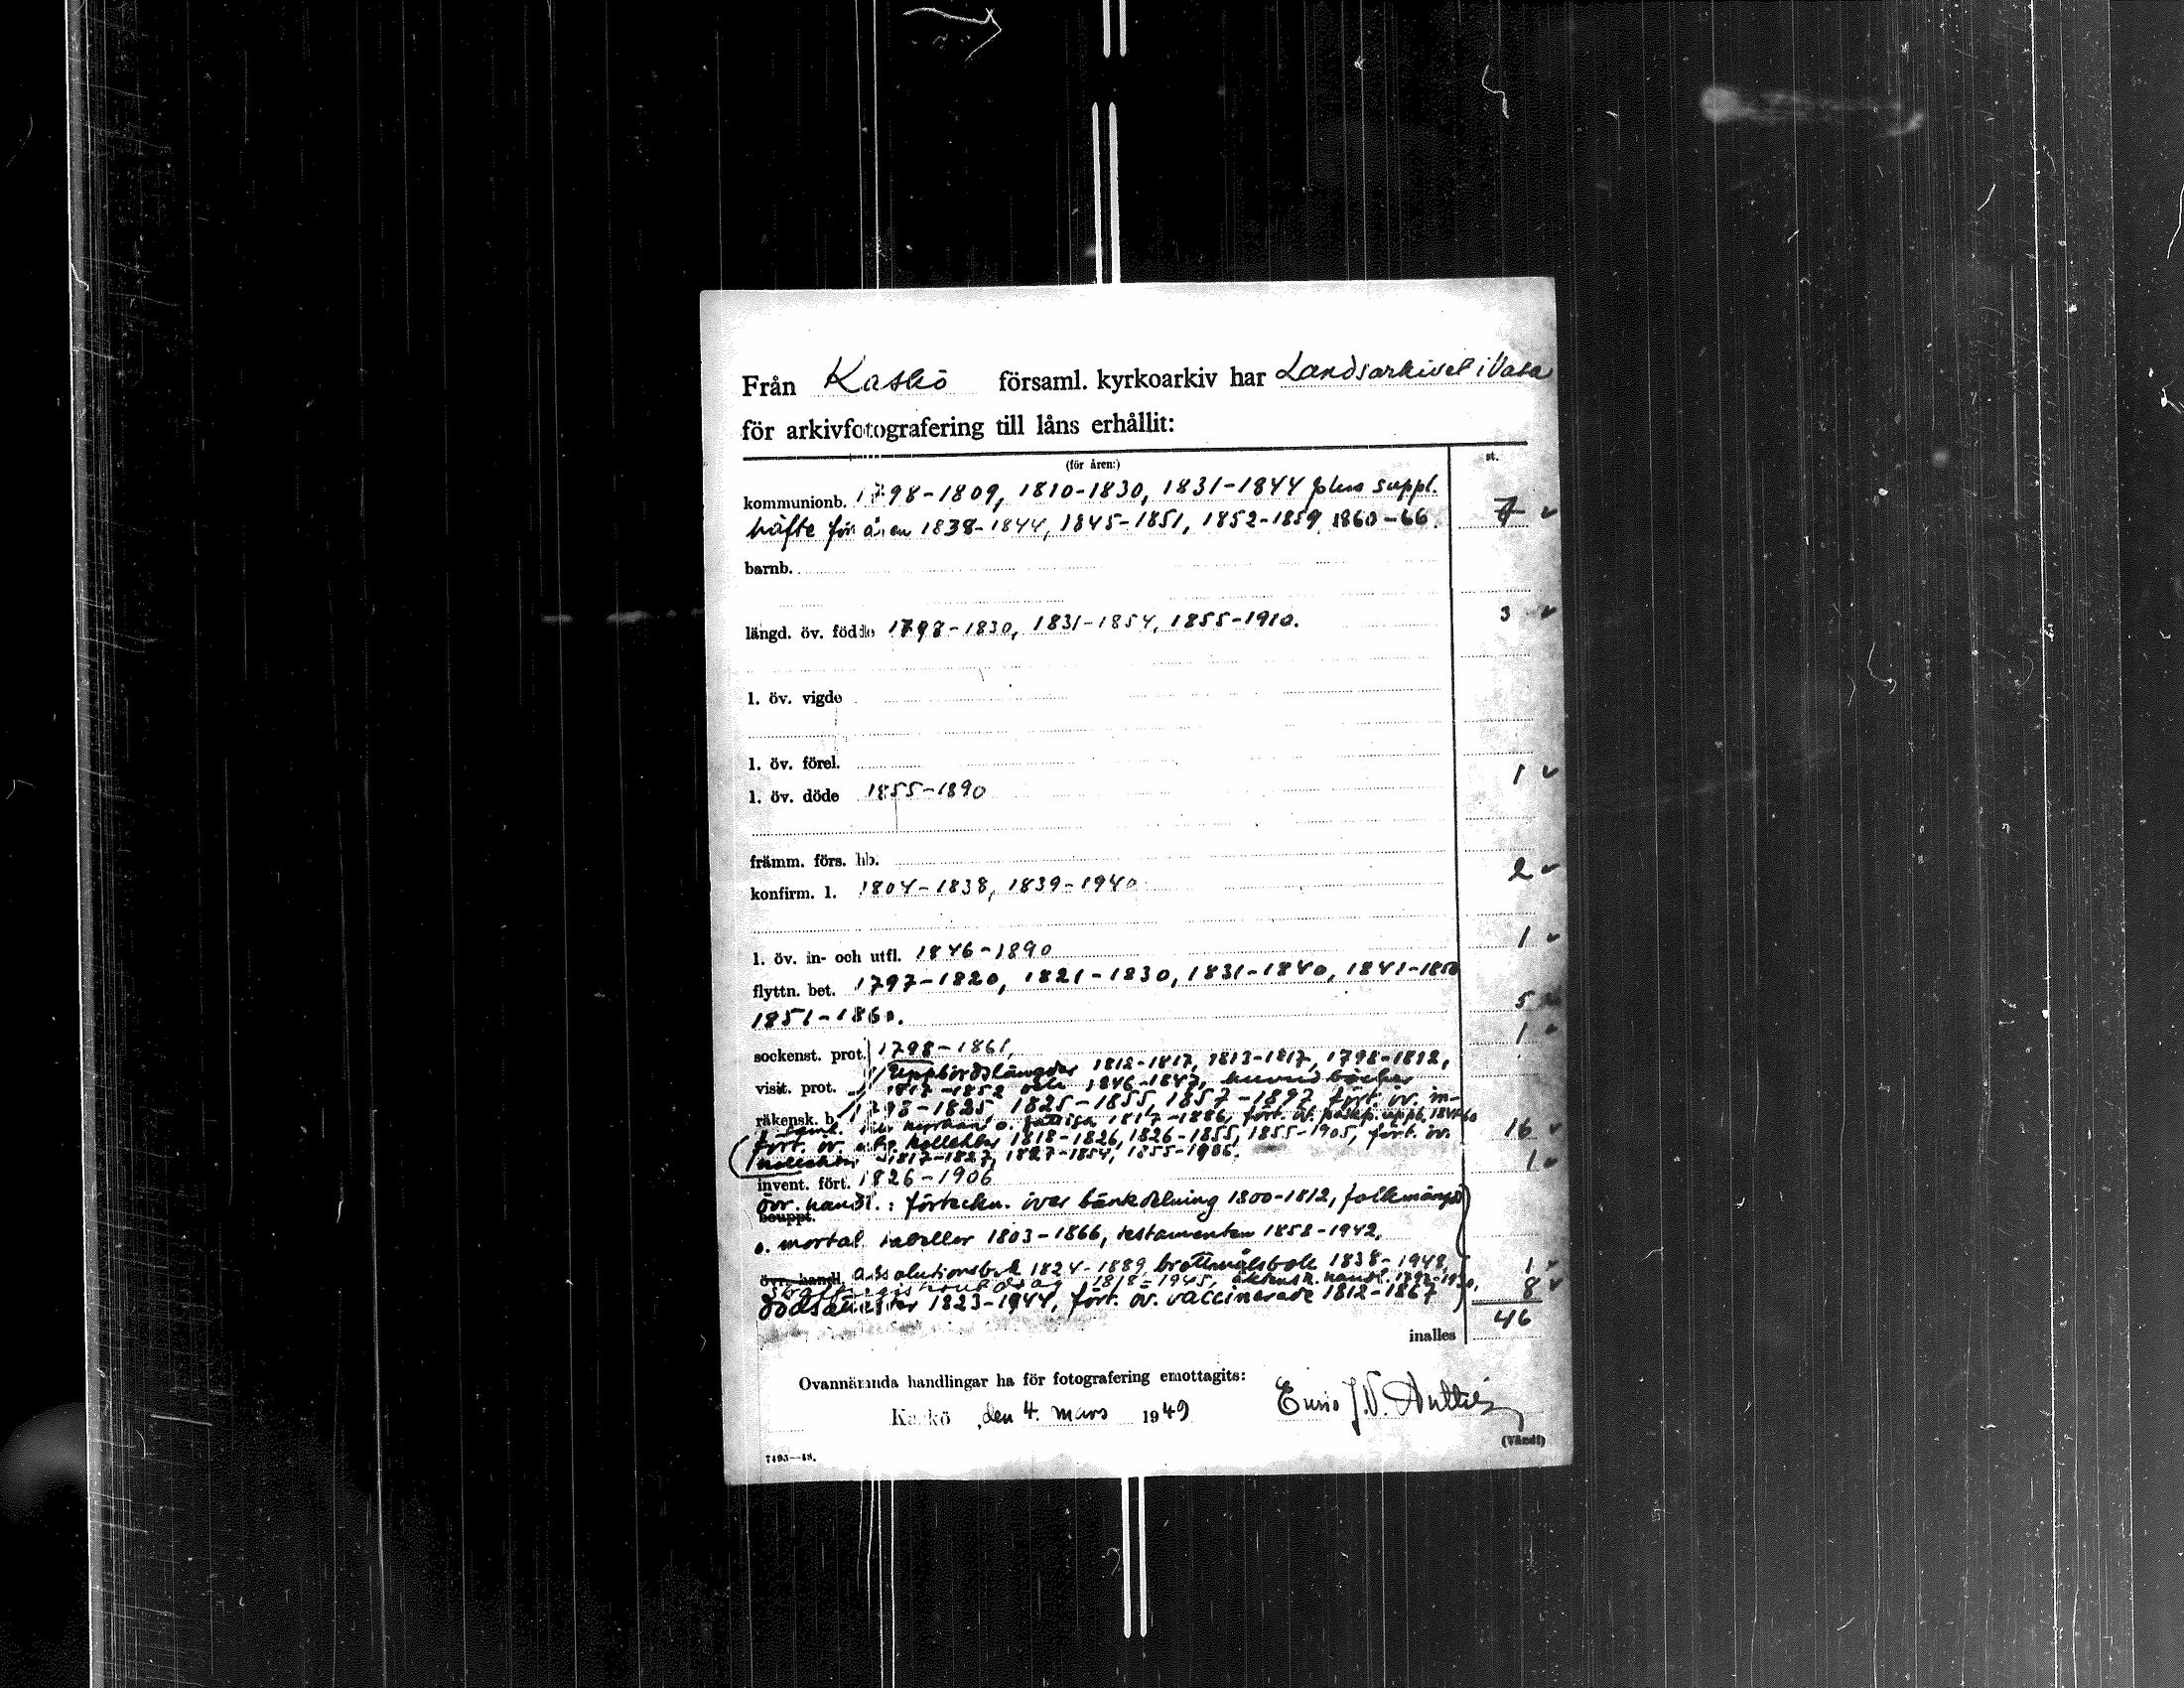 Från Kaskö församl. kyrkoarkiv har Landsarkivet i Vasa
för arkivfotografering till låns erhållit:
(för åren:) st.
kommunionb. 1798-1809, 1810-1830, 1831-1844 plus suppl.
häfte för åren 1838-1844, 1845-1851, 1852-1859, 1860-66. 7
barnb.
längd. öv. födde 1798-1830, 1831-1854, 1855-1910. 3
l. öv. vigde
l. öv. förel.
l. öv. döde 1855-1890 1
främm. förs. hb.
konfirm. l. 1804-1838, 1839-1940 2
l. öv. in- och utfl. 1846-1890 1
flyttn. bet. 1797-1820, 1821-1830, 1831-1840, 1841-1850
1851-1860. 5
sockenst. prot. 1798-1861, 1
Uppbördslängder 1812-1817, 1813-1817, 1798-1812,
visit. prot. 1817-1852 och 1846-1847, huvudböcker
räkensk. b. 1798-1825, 1825-1855, 1857-1897 fört. öv. in-
kyrkan o. fattiga 1817-1886, fört. öv.
fört. öv. kollekter 1818-1826, 1826-1855, 1855-1905, fört. öv. 16
1817-1827, 1827-1854, 1855-1906.
invent. fört. 1826-1906 1
övr. handl.: förteckn. över bänkdelning 1800-1812, folkmängd
beuppt.
o. mortal. tabeller 1803-1866, testamenten 1858-1942,
övr. handl. absolutionsbok 1824-1889 brottmålsbok 1838-1948, 1
1818-1945, äktensk. handl.
dödsattester 1823-1944, fört. öv. vaccinerade 1812-1867 8
inalles 46
Ovannämnda handlingar ha för fotografering emottagits:
Kaskö, den 4. mars 1949
(Vänd!)
7493—48.